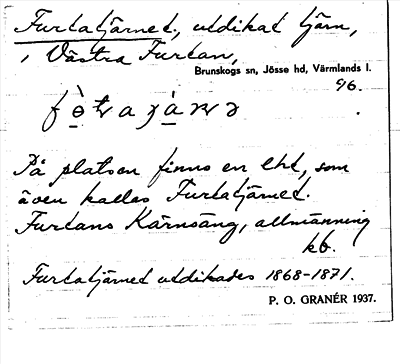 Furtatjärnet, utdikat tjärn,
i Västra Furtan,
Brunskogs sn, Jösse hd, Värmlands l.
96.
På platsen finns en lht, som
även kallas Furtatjärnet.
Furtans Kärnsäng, allmänning
kb.
Furtatjärnet utdikades 1868-1871.
P. O. GRANÉR 1937.